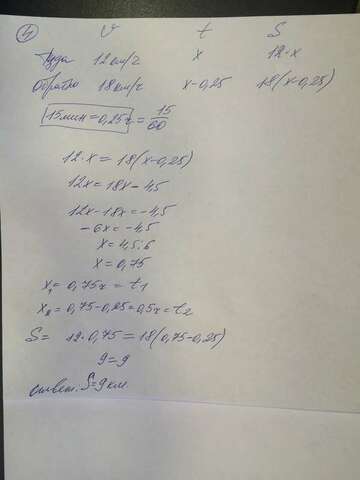 4) V t S
Туда 12 км/ч x 12·x
Обратно 18 км/ч x-0,25 18(x-0,25)
15 мин = 0,25ч = 15/60
12·x = 18(x-0,25)
12x = 18x - 4,5
12x - 18x = -4,5
-6x = -4,5
x = 4,5:6
x = 0,75
x₁ = 0,75ч = t1
x₂ = 0,75-0,25=0,5ч = t2
S = 12·0,75 = 18(0,75-0,25)
9=9
ответ. S=9 км.